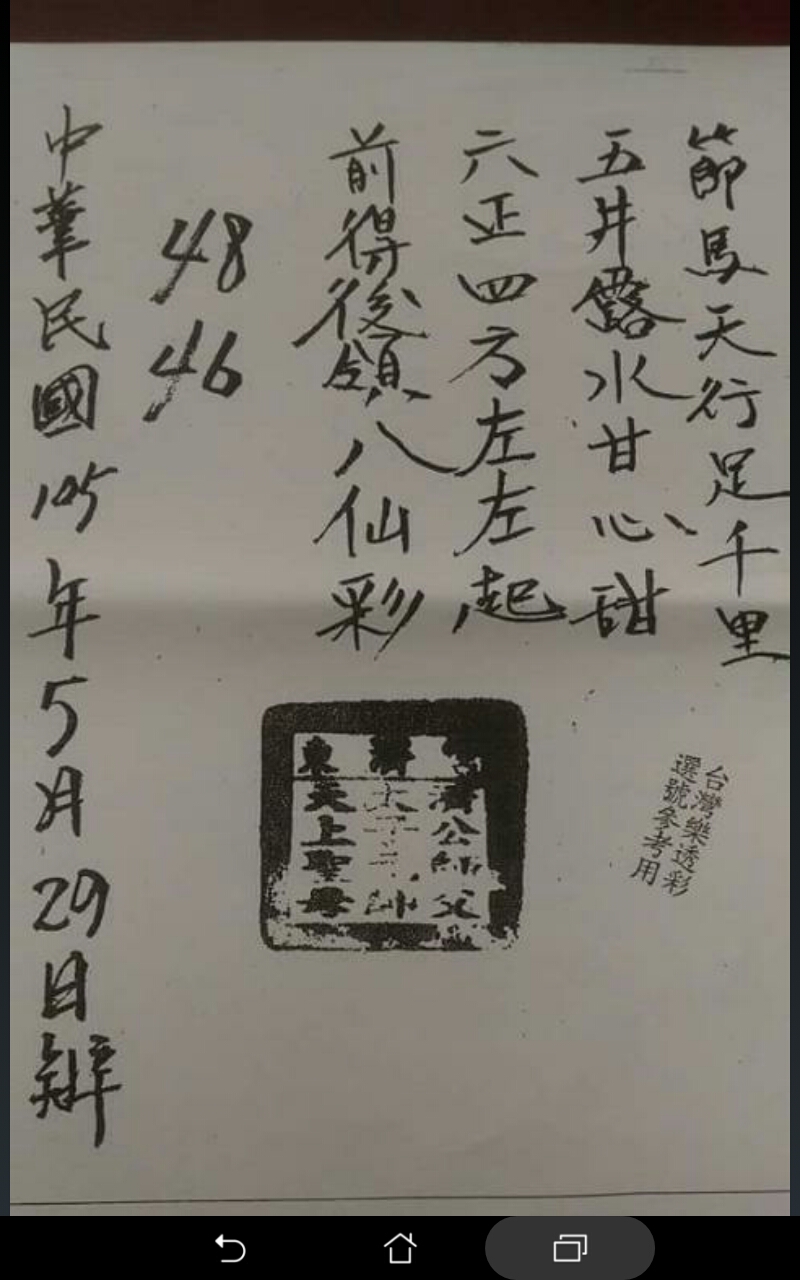 節馬天行足千里
五井露水甘心甜
六正四方左左起
前得後領八仙彩
48
46
中華民國105年5月29日辦
濟公師父
天上聖母
台灣樂透彩
選號參考用